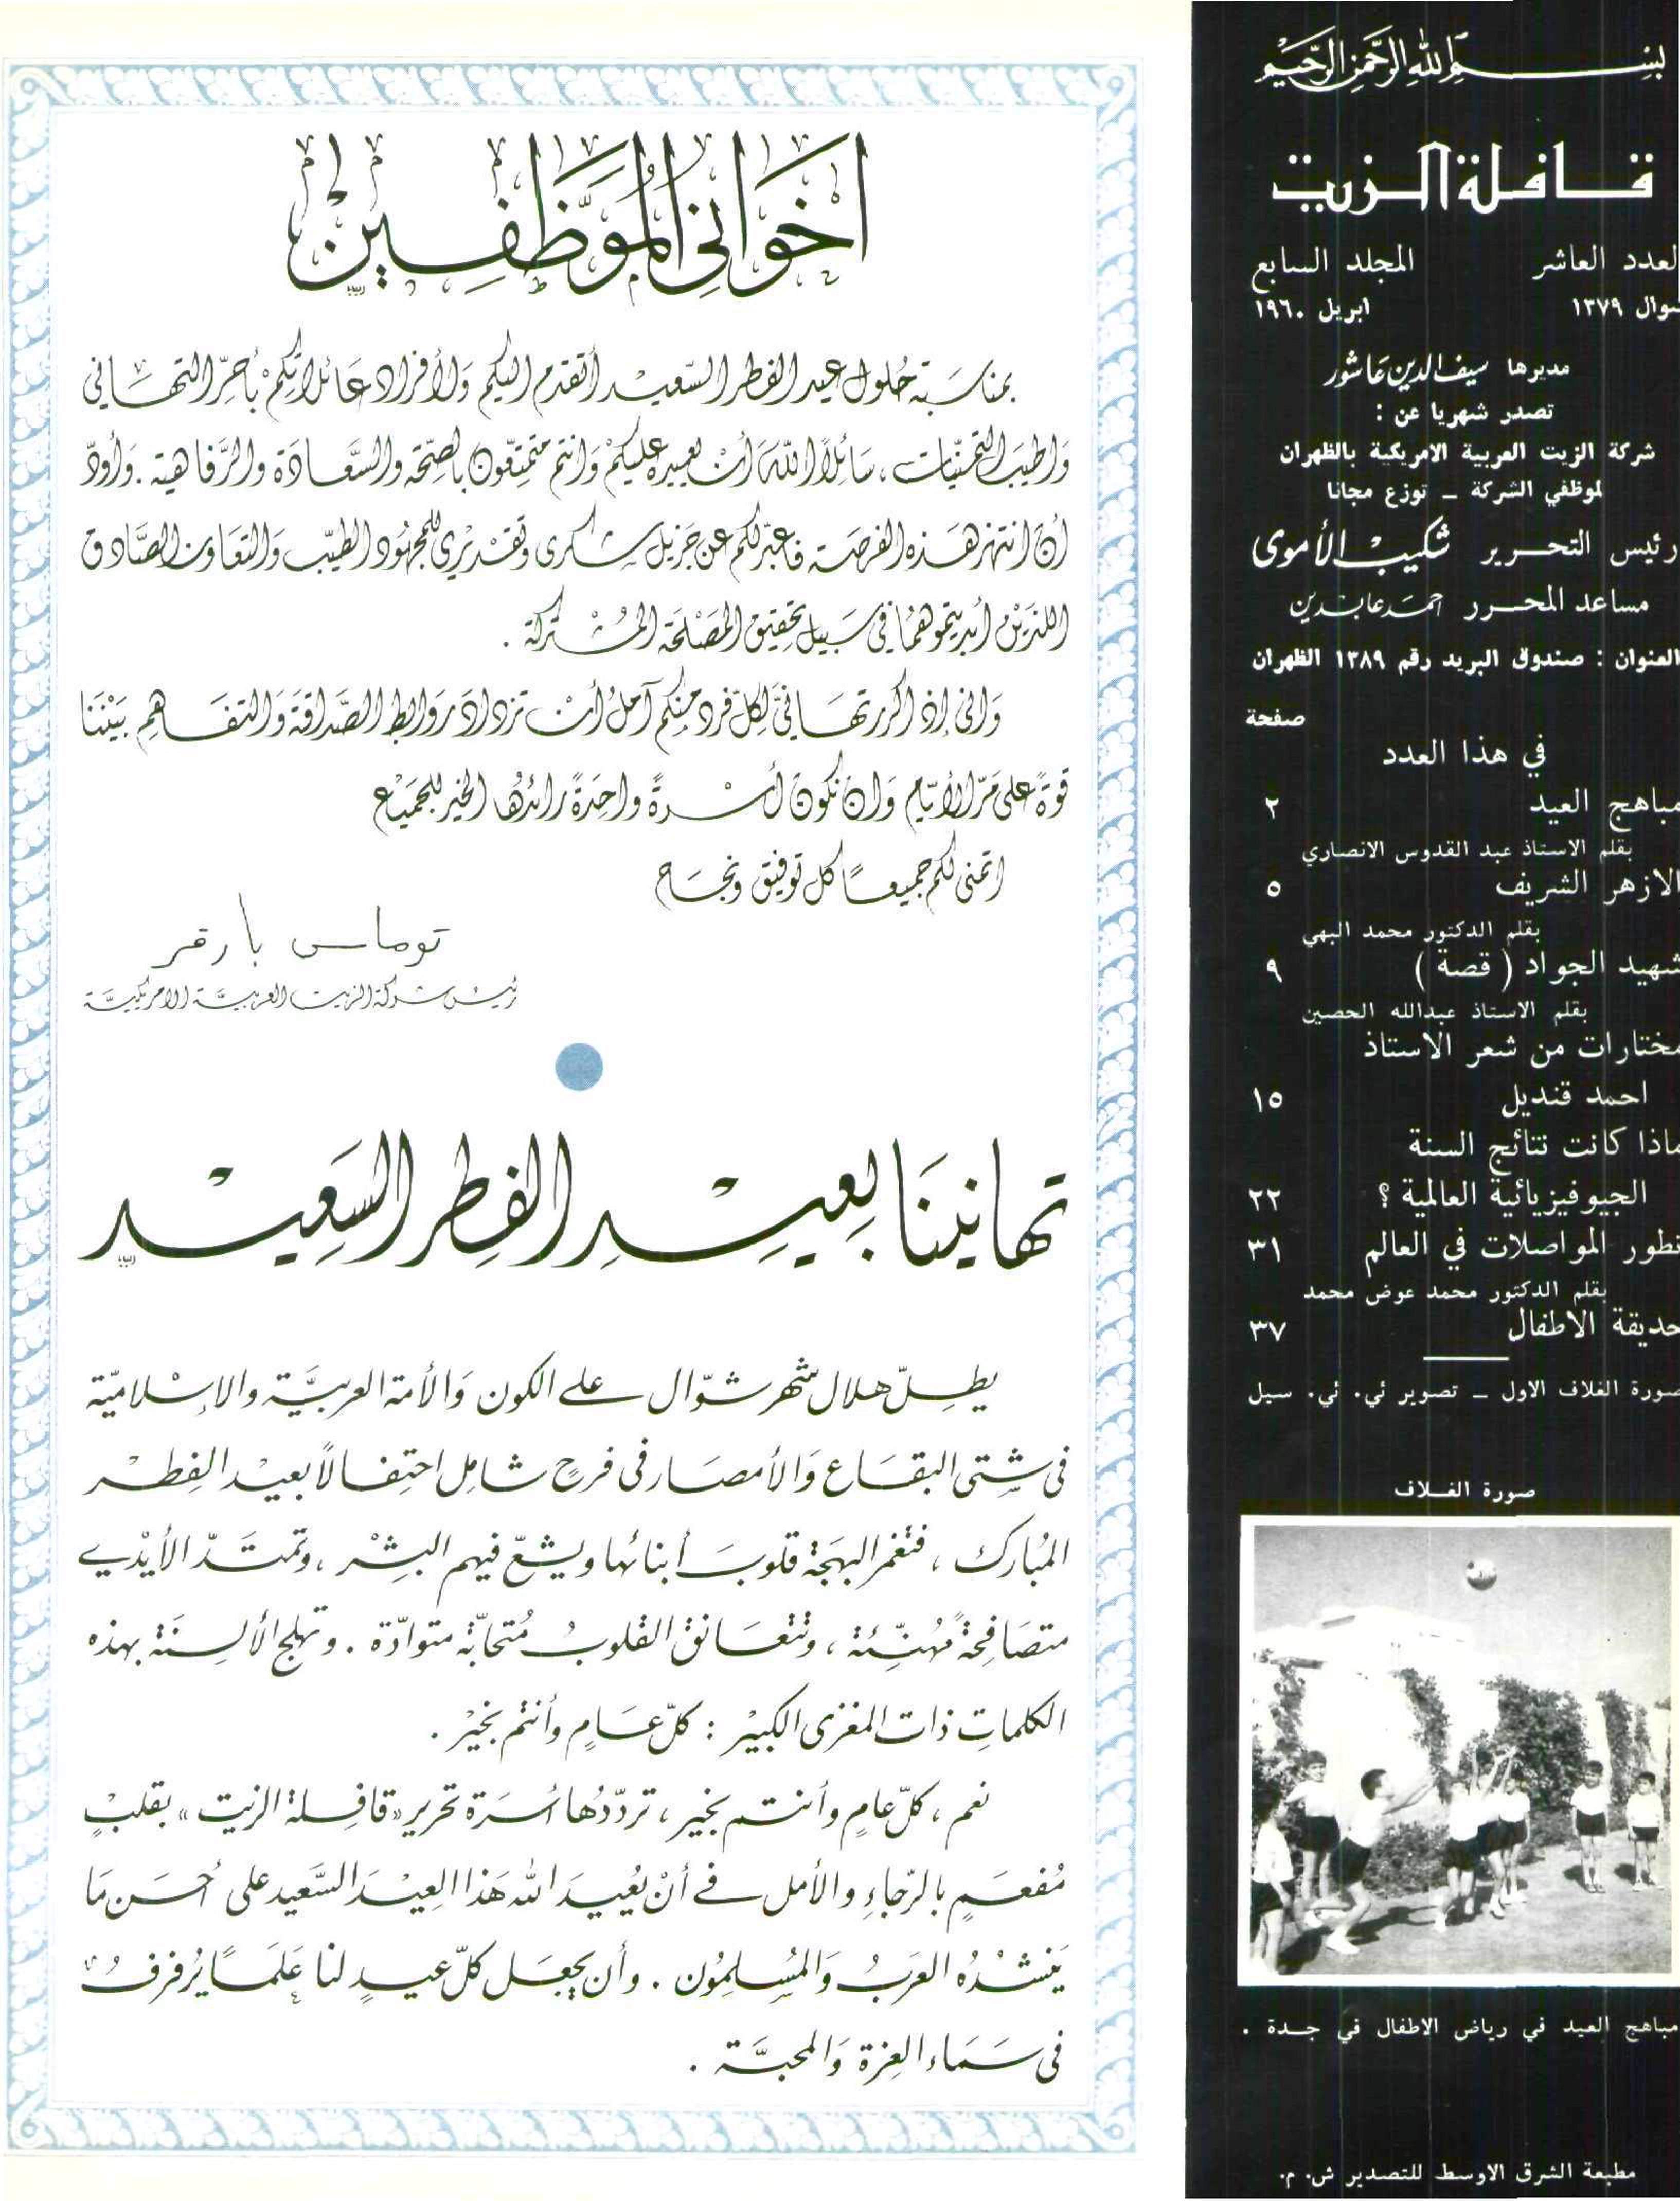 بسم الله الرحمن الرحيم
قافلة الزيت
العدد العاشر المجلد السابع
شوال ١٣٧٩ ابريل ١٩٦٠
مديرها سيف الدين عاشور
تصدر شهريا عن :
شركة الزيت العربية الامريكية بالظهران
لموظفي الشركة – توزع مجانا
رئيس التحرير شكيب الأموى
مساعد المحرر احمد عابدين
العنوان : صندوق البريد رقم ١٣٨٩ الظهران
صفحة
في هذا العدد
مباهج العيد ٢
بقلم الاستاذ عبد القدوس الانصاري
الازهر الشريف ٥
بقلم الدكتور محمد البهي
شهيد الجواد ( قصة ) ٩
بقلم الاستاذ عبدالله الحصين
مختارات من شعر الاستاذ
احمد قنديل ١٥
ماذا كانت نتائج السنة
الجيوفيزيائية العالمية ؟ ٢٢
تطور المواصلات في العالم ٣١
بقلم الدكتور محمد عوض محمد
حديقة الاطفال ٣٧
صورة الغلاف الاول – تصوير ئي. ئي. سيل
صورة الغلاف
مباهج العيد في رياض الاطفال في جدة .
مطبعة الشرق الاوسط للتصدير ش. م.
اخوانى الموَظّفِين
بمناسَبة حُلول عيد الفطر السّعيد أتقدم اليكم وَلأفراد عَائلاتِكمْ بأحرّ التهَانى
وَاطيَب التمنّيات ، سَائلاً اللّه أنْ يعيده عليكمْ وَانتم متمتّعون بالصّحّة والسَّعَادَة والرَّفاهية . وَأودّ
أن انتهز هَذه الفرصَة فاعبّر لكم عن جَزيل شكرى وَتقديْرى للمجهُود الطيّب وَالتعَاون الصَّادق
اللذيْن أبديتموهمَا في سَبيل تحقيق المَصْلحَة المُشتركة .
وَانى إذ اكرر تهَانىّ لِكلّ فرد منكم آمل أنْ تزدادَ رَوابط الصّدَاقة وَالتفَاهم بَيْنَنَا
قوةً على مَرّ الأيّام وَان نكون أسْرةً واحَدةً رائدُها الخير للجَميْع
اتمنى لكم جَميعًا كل توفيق وَنجَاح
توماس بارقر
رئيس شركة الزيت العربيَّة الامريكيَّة
تهانينَا بعِيدِ الفِطر السَعِيْد
يطِلّ هلال شهر شوّال على الكون وَالأمة العربيَّة والاسْلاميّة
في شتى البقَاع وَالأمصَار في فرحٍ شامِل احتِفالاً بعيْد الفِطْر
المُبارك ، فتغمر البهَجة قلوبَ أبنائها ويشعّ فيهم البشْر ، وَتمتَدّ الأيْدي
متصَافِحةً مُهنِّئة ، وَتتعَانق القلوبُ مُتحابّة متوادّة . وَتلهج الألسِنَة بهذه
الكلماتِ ذات المغزى الكبيْر : كلّ عَامٍ وأنتم بخيْر .
نعم ، كلّ عامٍ وأنتم بخير ، تردّدُها أسرَة تحرير «قافِلة الزيت» بقلبٍ
مُفعَمٍ بالرّجَاءِ والأمل في أنْ يُعيدَ الله هَذا العِيْدَ السَّعيد على أحسَن مَا
يَنشْدُه العَربُ وَالمُسلِمُون . وأن يجعَل كلّ عيدٍ لنا عَلَمًا يُرفرفُ
في سَمَاء العِزة وَالمحبَّة .